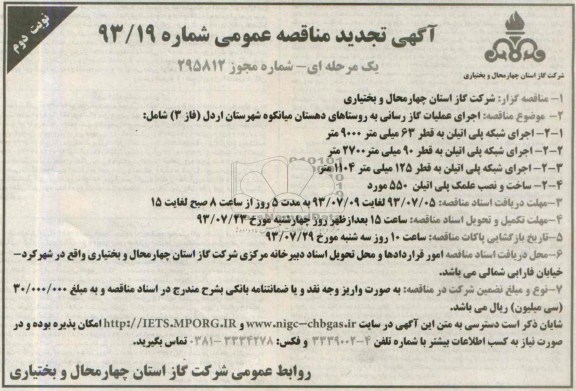 نوبت دوم
آگهی تجدید مناقصه عمومی شماره ۹۳/۱۹
یک مرحله ای- شماره مجوز ۲۹۵۸۱۲
شرکت گاز استان چهارمحال و بختیاری
۱- مناقصه گزار: شرکت گاز استان چهارمحال و بختیاری
۲- موضوع مناقصه: اجرای عملیات گاز رسانی به روستاهای دهستان میانکوه شهرستان اردل (فاز ۳) شامل:
۲-۱- اجرای شبکه پلی اتیلن به قطر ۶۳ میلی متر ۹۰۰۰ متر
۲-۲- اجرای شبکه پلی اتیلن به قطر ۹۰ میلی متر ۲۷۰۰ متر
۲-۳- اجرای شبکه پلی اتیلن به قطر ۱۲۵ میلی متر ۱۱۰۴ متر
۲-۴- ساخت و نصب علمک پلی اتیلن ۵۵۰ مورد
۳-مهلت دریافت اسناد مناقصه: ۹۳/۰۷/۰۵ لغایت ۹۳/۰۷/۰۹ به مدت ۵ روز از ساعت ۸ صبح لغایت ۱۵
۴-مهلت تکمیل و تحویل اسناد مناقصه: ساعت ۱۵ بعدازظهر روز چهارشنبه مورخ ۹۳/۰۷/۲۳
۵-تاریخ بازگشایی پاکات مناقصه: ساعت ۱۰ روز سه شنبه مورخ ۹۳/۰۷/۲۹
۶-محل دریافت اسناد مناقصه امور قراردادها و محل تحویل اسناد دبیرخانه مرکزی شرکت گاز استان چهارمحال و بختیاری واقع در شهرکرد-
خیابان فارابی شمالی می باشد.
۷-نوع و مبلغ تضمین شرکت در مناقصه: به صورت واریز وجه نقد و یا ضمانتنامه بانکی بشرح مندرج در اسناد مناقصه و به مبلغ ۳۰/۰۰۰/۰۰۰
(سی میلیون) ریال می باشد.
شایان ذکر است دسترسی به متن این آگهی در سایت www.nigc-chbgas.ir و http://IETS.MPORG.IR امکان پذیر بوده و در
صورت نیاز به کسب اطلاعات بیشتر با شماره تلفن ۴-۳۳۳۹۰۰۲ و فکس: ۳۳۳۴۲۷۸ -۰۳۸۱ تماس بگیرید.
روابط عمومی شرکت گاز استان چهارمحال و بختیاری